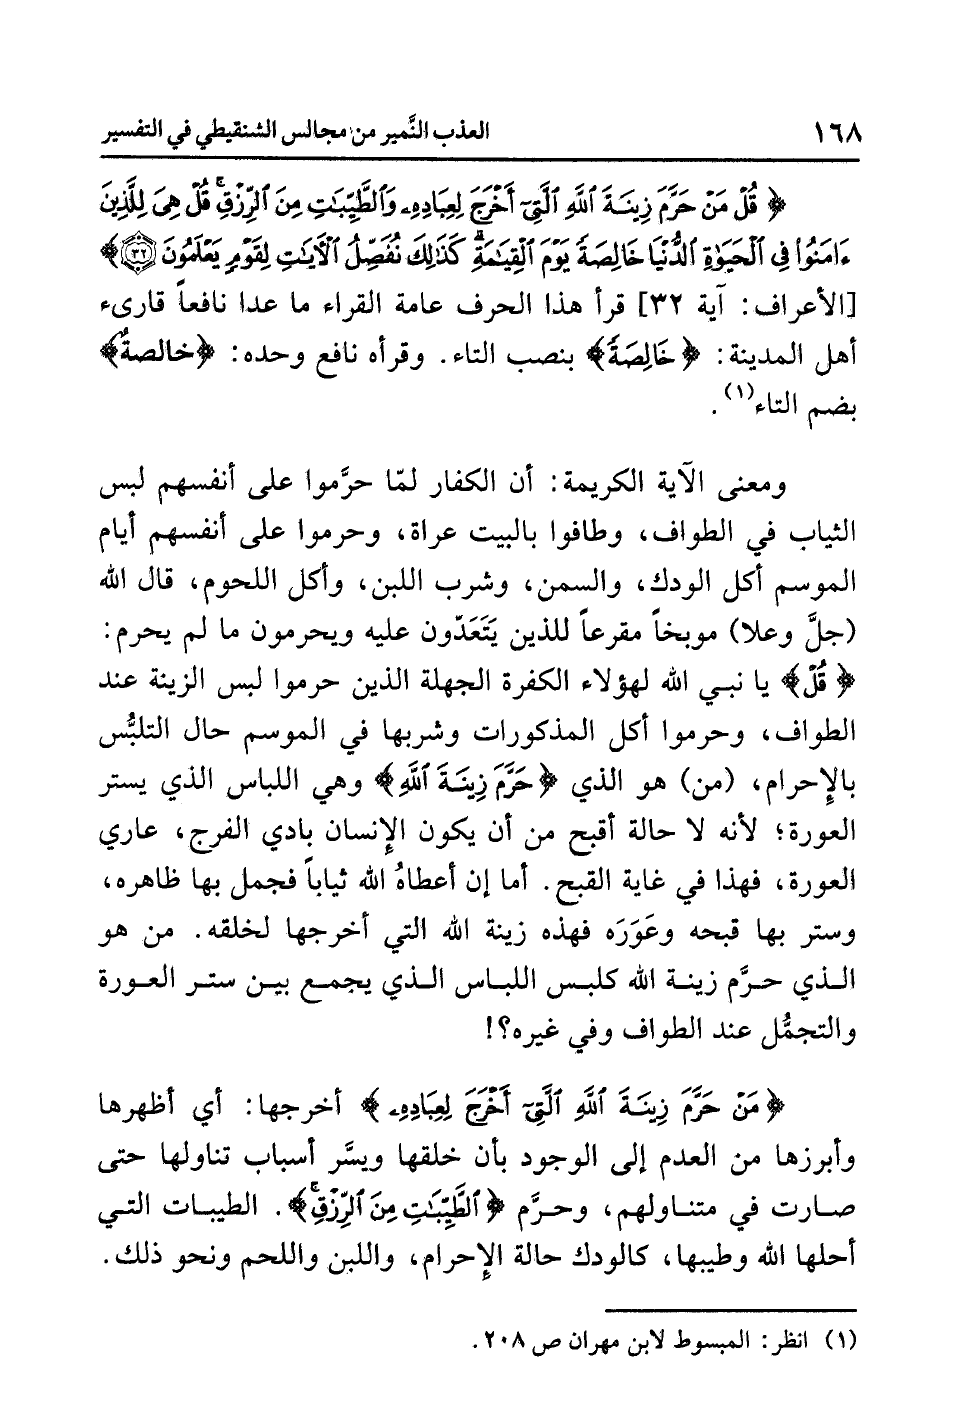 ١٦٨ العذب النَّمير من مجالس الشنقيطي في التفسير
﴿ قُلْ مَنْ حَرَّمَ زِينَةَ ٱللَّهِ ٱلَّتِىٓ أَخْرَجَ لِعِبَادِهِۦ وَٱلطَّيِّبَٰتِ مِنَ ٱلرِّزْقِۚ قُلْ هِىَ لِلَّذِينَ
ءَامَنُوا۟ فِى ٱلْحَيَوٰةِ ٱلدُّنْيَا خَالِصَةً يَوْمَ ٱلْقِيَٰمَةِۗ كَذَٰلِكَ نُفَصِّلُ ٱلْءَايَٰتِ لِقَوْمٍ يَعْلَمُونَ ٣٢﴾
[الأعراف: آية ٣٢] قرأ هذا الحرف عامة القراء ما عدا نافعاً قارىء
أهل المدينة: ﴿خَالِصَةً﴾ بنصب التاء. وقرأه نافع وحده: ﴿خالصةٌ﴾
بضم التاء(١).
ومعنى الآية الكريمة: أن الكفار لمّا حرَّموا على أنفسهم لبس
الثياب في الطواف، وطافوا بالبيت عراة، وحرموا على أنفسهم أيام
الموسم أكل الودك، والسمن، وشرب اللبن، وأكل اللحوم، قال الله
(جلَّ وعلا) موبخاً مقرعاً للذين يَتَعَدّون عليه ويحرمون ما لم يحرم:
﴿ قُلْ﴾ يا نبي الله لهؤلاء الكفرة الجهلة الذين حرموا لبس الزينة عند
الطواف، وحرموا أكل المذكورات وشربها في الموسم حال التلبُّس
بالإِحرام، (من) هو الذي ﴿حَرَّمَ زِينَةَ ٱللَّهِ﴾ وهي اللباس الذي يستر
العورة؛ لأنه لا حالة أقبح من أن يكون الإِنسان بادي الفرج، عاري
العورة، فهذا في غاية القبح. أما إن أعطاهُ الله ثياباً فجمل بها ظاهره،
وستر بها قبحه وعَوَرَه فهذه زينة الله التي أخرجها لخلقه. من هو
الذي حرَّم زينة الله كلبس اللباس الذي يجمع بين ستر العورة
والتجمُّل عند الطواف وفي غيره؟!
﴿مَنْ حَرَّمَ زِينَةَ ٱللَّهِ ٱلَّتِىٓ أَخْرَجَ لِعِبَادِهِۦ﴾ أخرجها: أي أظهرها
وأبرزها من العدم إلى الوجود بأن خلقها ويسَّر أسباب تناولها حتى
صارت في متناولهم، وحرَّم ﴿ٱلطَّيِّبَٰتِ مِنَ ٱلرِّزْقِۚ﴾. الطيبات التي
أحلها الله وطيبها، كالودك حالة الإِحرام، واللبن واللحم ونحو ذلك.
(١) انظر: المبسوط لابن مهران ص ٢٠٨.